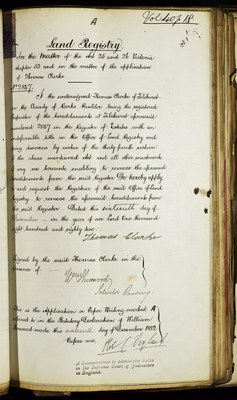 A
Vol 40 p 18
Land Registry
In the Matter of the Act 25 and 26 Victoria
chapter 53 and in the matter of the application
of Thomas Clarke
No 2887.
I the undersigned Thomas Clarke of Tilehurst
in the County of Berks being the registered
Proprietor of the hereditaments at Tilehurst aforesaid
numbered 2887 in the Register of Estates with an
indefeasible title in the Office of Land Registry and
being desirous by virtue of the thirty fourth section
of the above mentioned Act and all other enactments
any me hereunto enabling to remove the aforesaid
hereditaments from the said Register Do hereby apply
and request the Registrar of the said Office of Land
Registry to remove the aforesaid hereditaments from
the said Register Dated this sixteenth day of
in the year of our Lord One thousand
eight hundred and eighty two
Thomas Clarke
Signed by the said Thomas Clarke in the
presence of
Wm
Solicitor Reading
This is the Application or Paper Writing marked A
referred to in the Statutory Declaration of William
made this sixteenth day of December 1882
Before me,
A Commissioner to administer Oaths
in the Supreme Court of Judicature
in England.